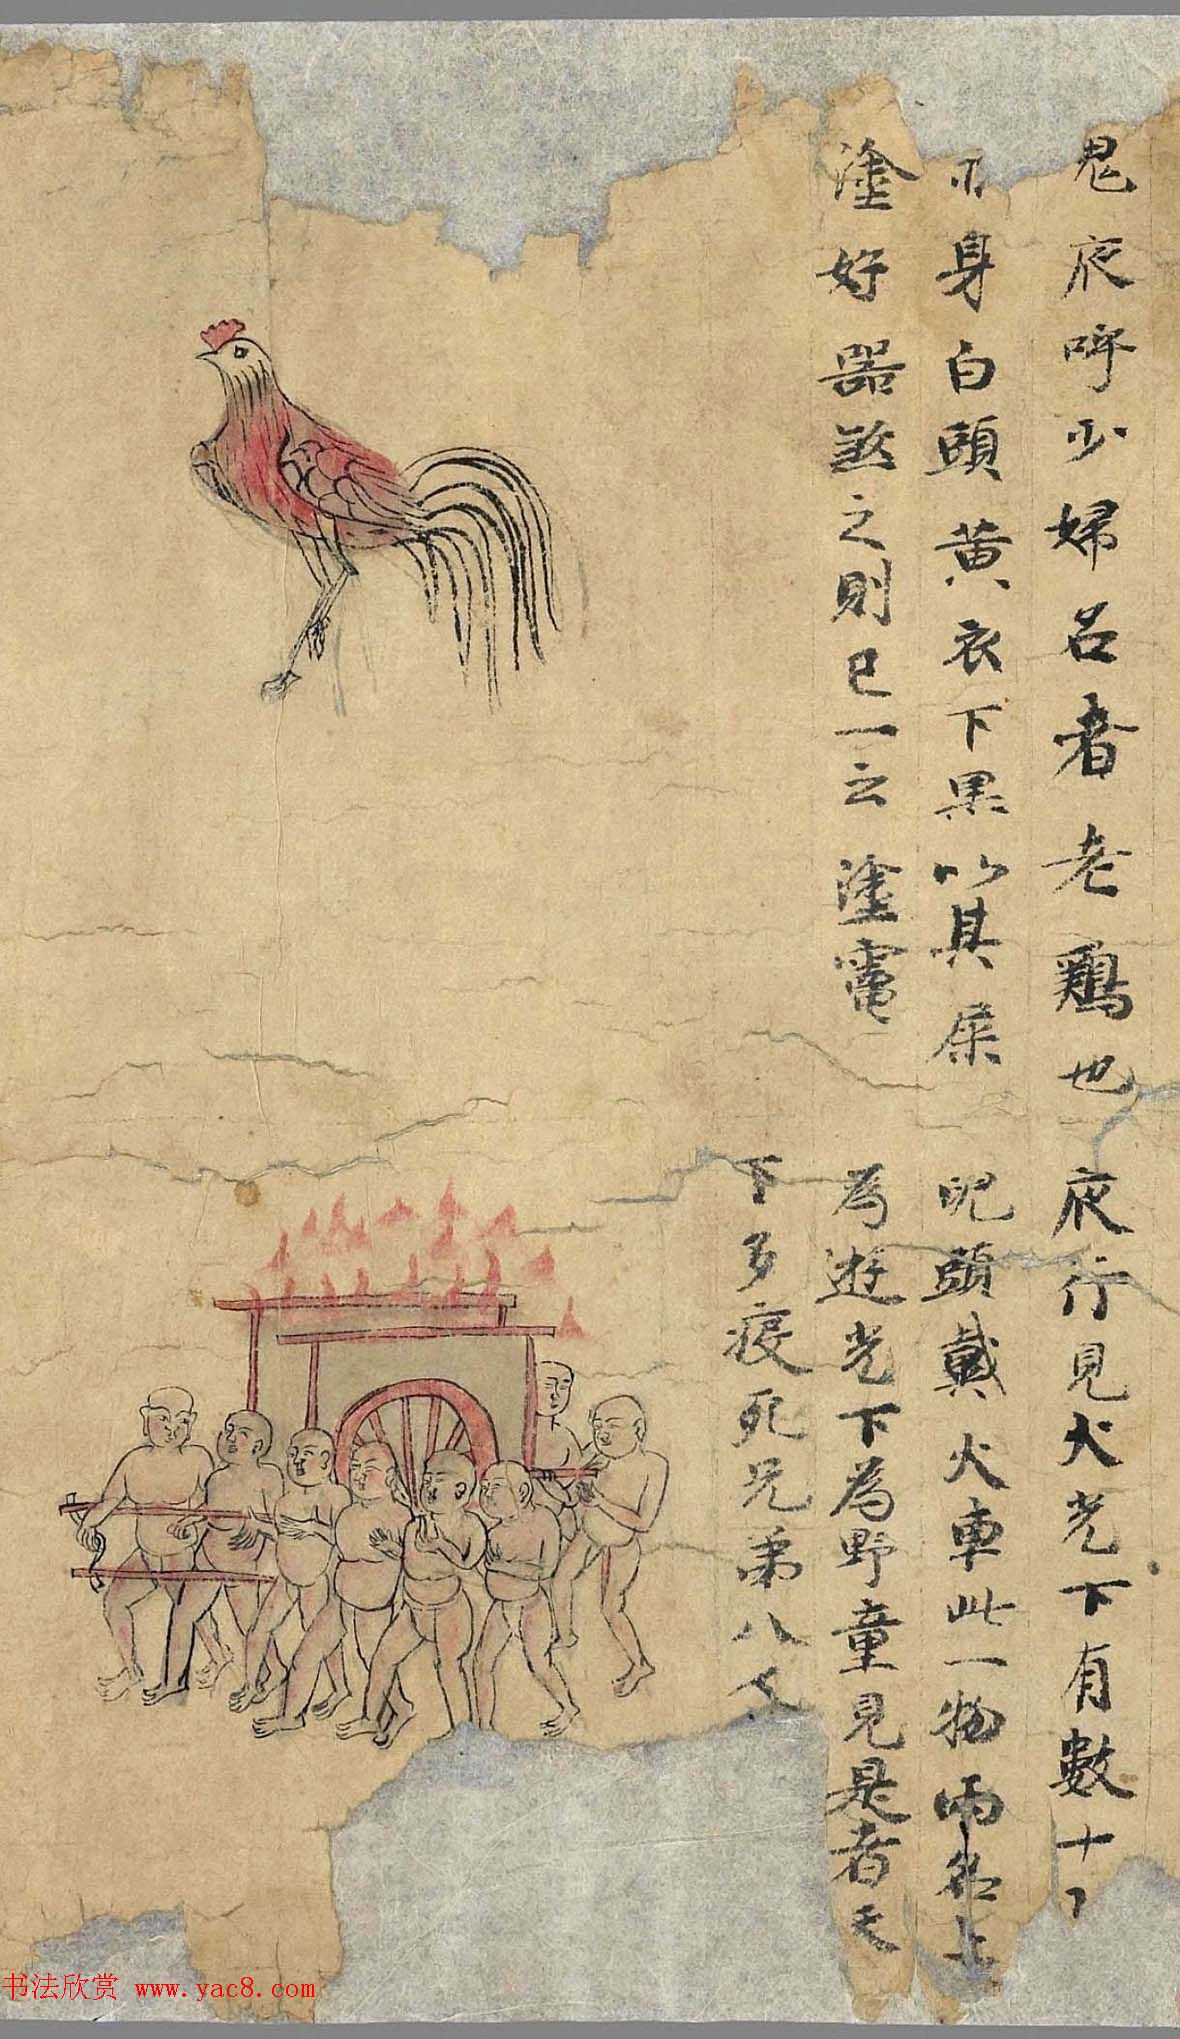 鬼夜呼少婦名者老鷄也
亦身白頭黄衣下黒以其屎
塗好器煞之則已一云塗竃
夜行見火光下有數十
呪頭戴火車此一物兩名上
為遊光下為野童見是者天
下多疫死兄弟八人
书法欣赏 www.yac8.com